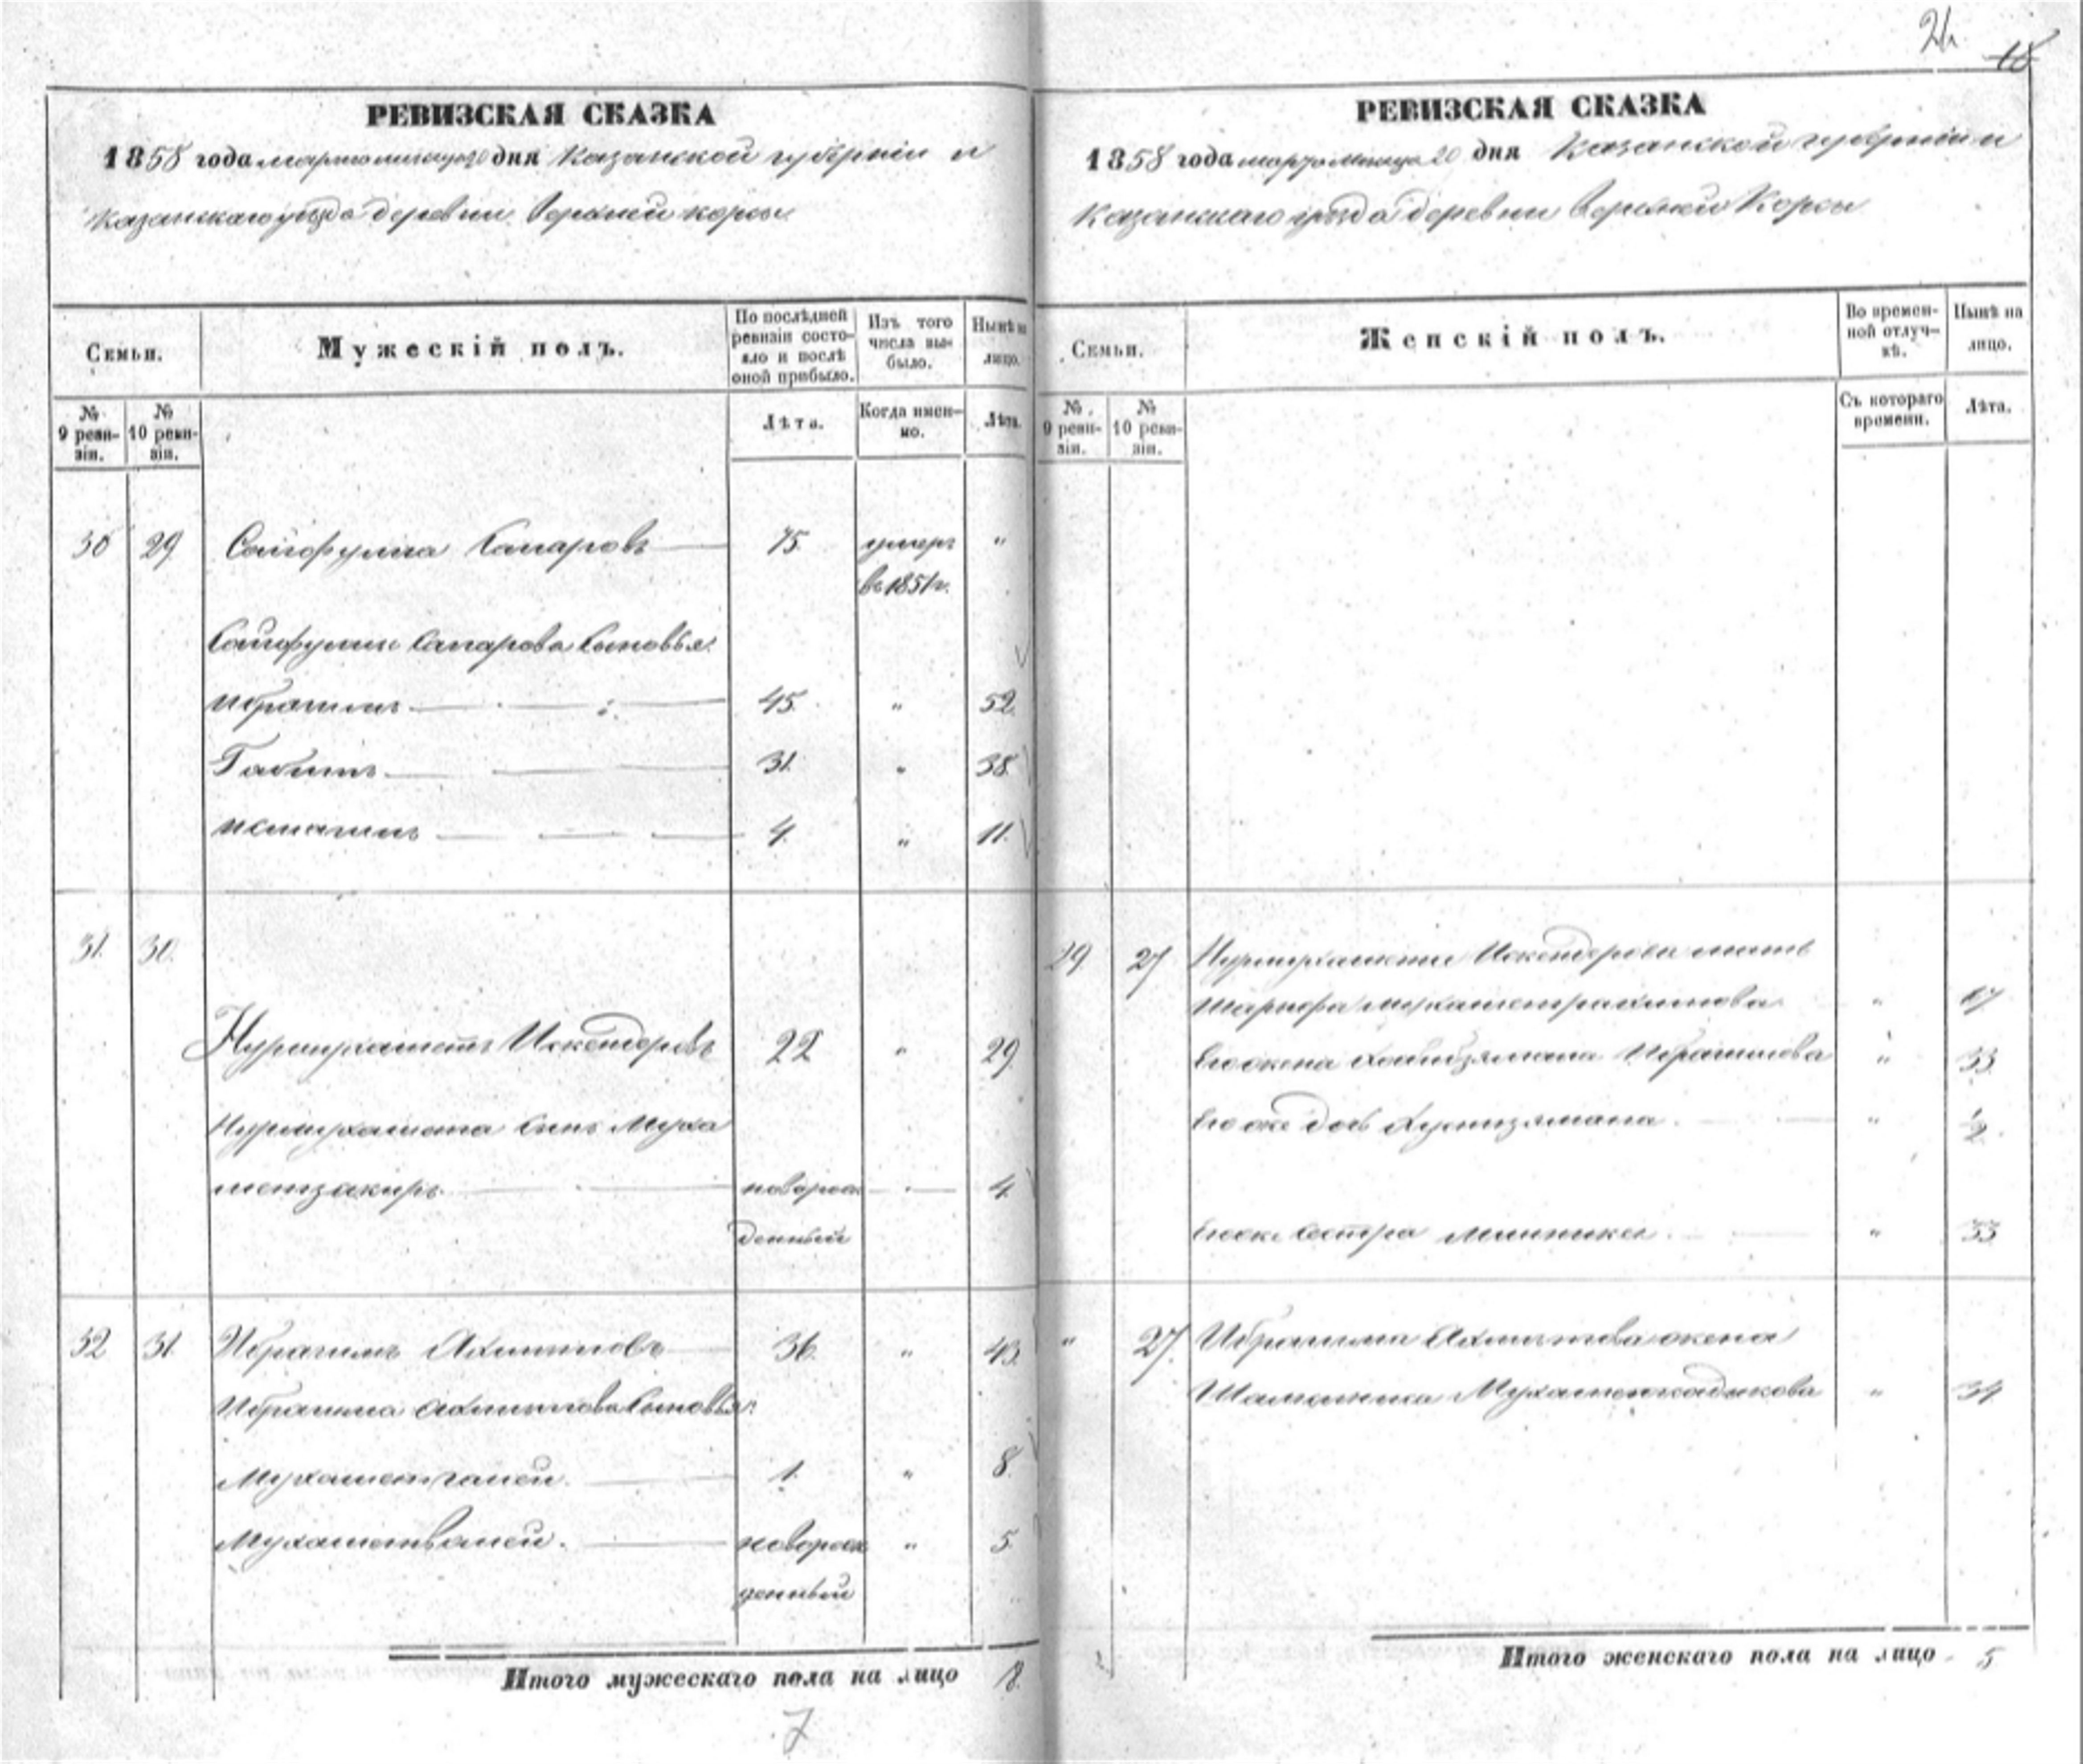 24
18
РЕВИЗСКАЯ СКАЗКА
1858 года марта месяца 20 дня Казанской губернiи и
Казанскаго уезда деревни Верхней корсы
Семьи.
Мужескiй полъ.
По послѣдней ревизiи состояло и послѣ оной прибыло.
Изъ того числа выбыло.
Нынѣ на лицо.
№ 9 ревизiи.
№ 10 ревизiи.
Лѣта.
Когда именно.
Лѣта.
30 29 Сайфулла Сапаровъ 75 умеръ "
въ 1851 г.
Сайфуллы Сапарова Сыновья:
Ибрагимъ 45 " 52
Габитъ 31 " 38
4 " 11
31 30
Нурмухаметъ Искендеровъ 22 " 29
Нурмухамета Сынъ Муха
метзакиръ новорож 4
денный
32 31 Ибрагимъ 36 " 43
Ибрагима Сыновья:
Мухаметгалей 1 " 8
Мухаметвалей. новорож " 5
денный
Итого мужескаго пола на лицо 8
7
РЕВИЗСКАЯ СКАЗКА
1858 года марта месяца 20 дня Казанской губернiи и
Казанскаго уезда деревни Верхней Корсы
Семьи.
Женскiй полъ.
Во временной отлучкѣ.
Нынѣ на лицо.
№ 9 ревизiи.
№ 10 ревизiи.
Съ котораго времени.
Лѣта.
29 27 Нурмухамета Искендерова мать
Шарифа "
Его жена Ибрагимова " 33
Его же дочь "
Его же Сестра " 33
" 27 Ибрагима жена
" 34
Итого женскаго пола на лицо 5